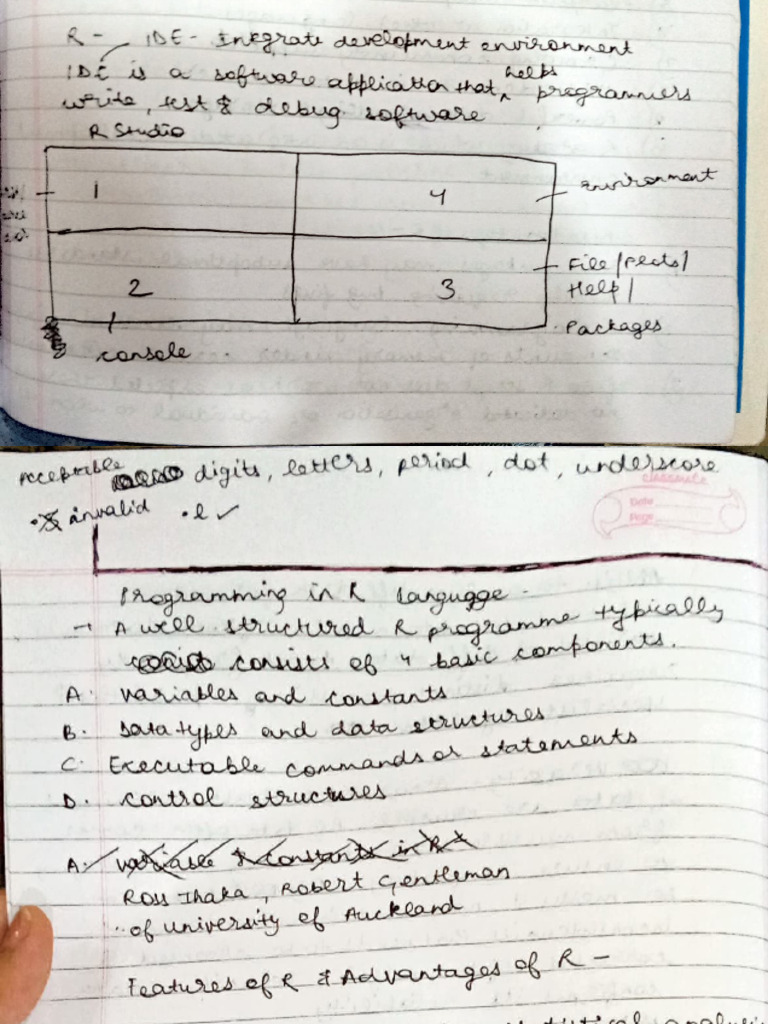 R - IDE - Integrate development environment
IDE is a software application that helps programmers
write, test & debug software
R Studio
1 4 environment
File/Plots/
2 3 Help/
Packages
console
Acceptable digits, letters, period, dot, underscore
invalid .l ✓
classmate
Date
Page
Programming in R Languagge -
→ A well structured R programme typically
consists of 4 basic components.
A. variables and constants
B. Data types and data structures
C. Executable commands or statements
D. control structures
A. variable & constants in R
Ross Ihaka, Robert Gentleman
of university of Auckland
Features of R & Advantages of R -